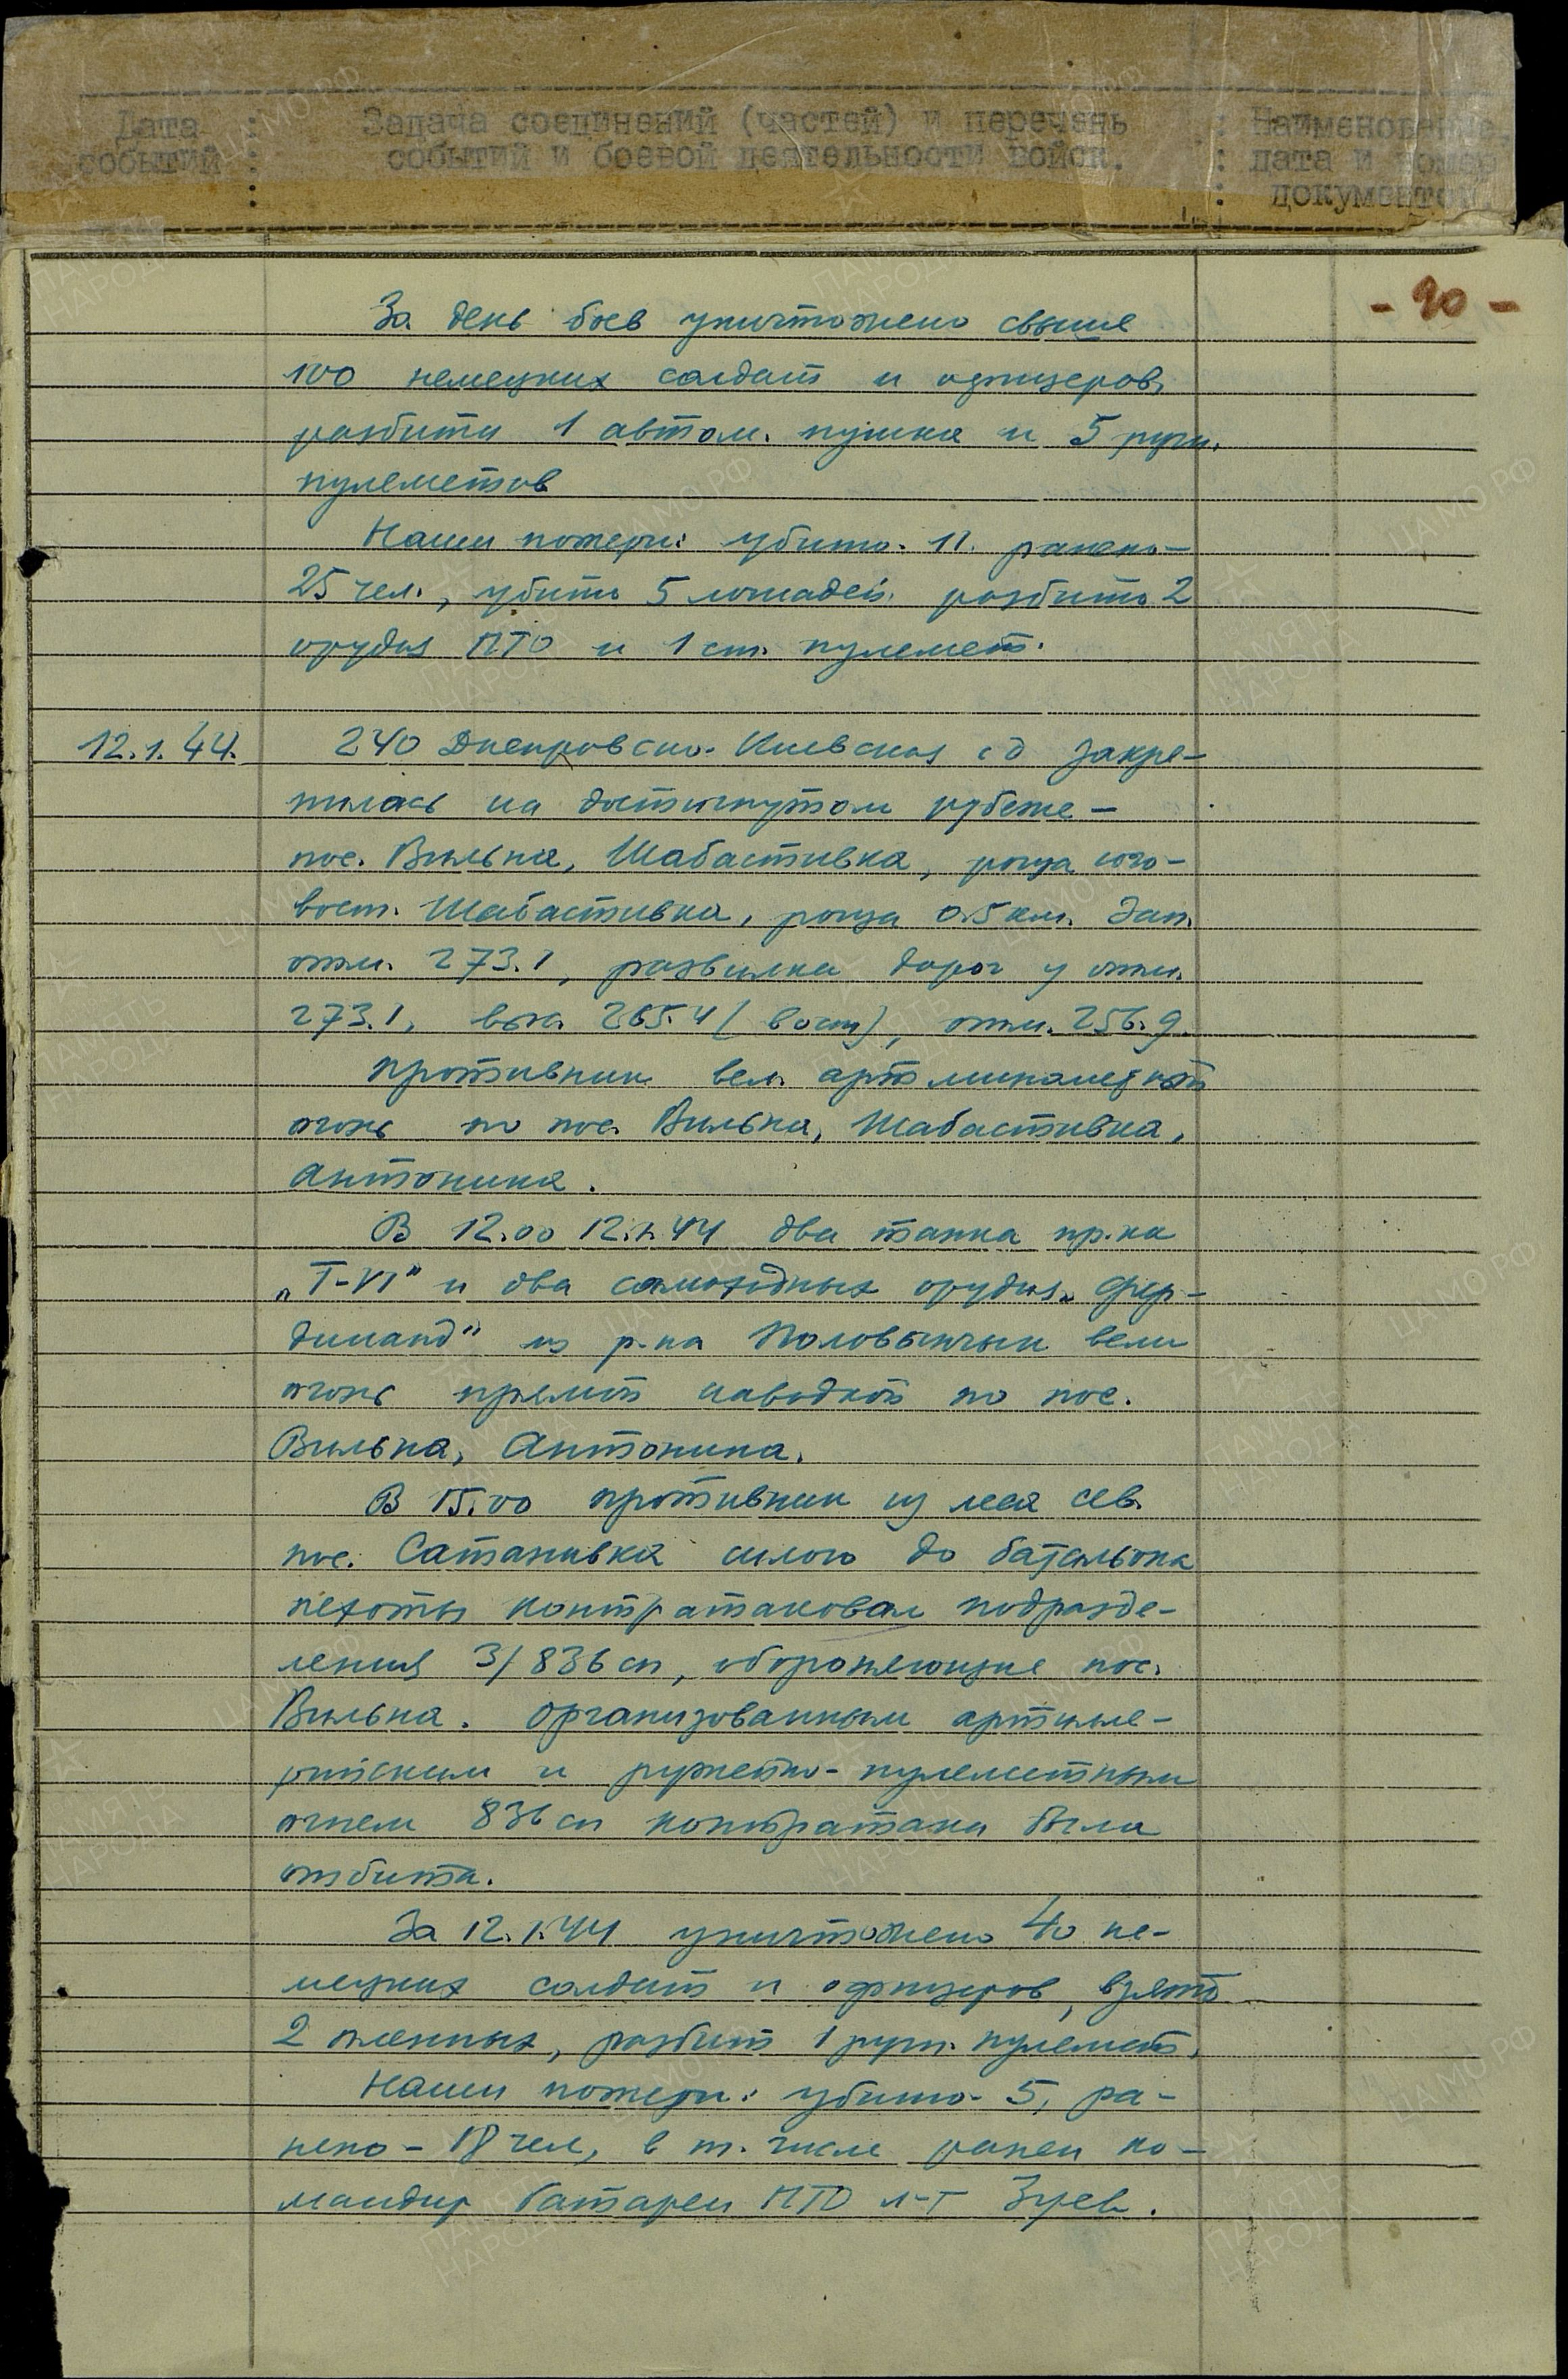 Дата : Задача соединений (частей) и перечень : Наименование,
событий : событий и боевой деятельности войск. : дата и номер
: документов.
- 90 -
За день боев уничтожено свыше
100 немецких солдат и офицеров,
разбиты 1 автом. пушка и 5 ручн.
пулеметов
Наши потери: убито- 11. ранено-
25 чел., убито 5 лошадей. разбито 2
орудия ПТО и 1 ст. пулемет.
12.1.44. 240 Днепровско-Киевская сд закре-
пилась на достигнутом рубеже -
пос. Вильна, Шабастивка, роща юго-
вост. Шабастивка, роща 0.5 км. зап.
отм. 273.1, развилка дорог у отм.
273.1, выс. 265.4 (вост), отм. 256.9.
Противник вел артминометный
огонь по пос. Вильна, Шабастивка,
Антонина.
В 12.00 12.1.44 два танка пр-ка
„Т-VI" и два самоходных орудия „Фер-
динанд" из р-на Половынчик вели
огонь прямой наводкой по пос.
Вильна, Антонина.
В 15.00 противник из леса сев.
пос. Сатанивка силою до батальона
пехоты контратаковал подразде-
ления 3/836 сп, обороняющие пос.
Вильна. Организованным артилле-
рийским и ружейно-пулеметным
огнем 836 сп контратака была
отбита.
За 12.1.44 уничтожено 40 не-
мецких солдат и офицеров, взято
2 пленных, разбит 1 ручн. пулемет.
Наши потери: убито- 5, ра-
нено - 18 чел, в т. числе ранен ко-
мандир батареи ПТО л-т Зуев.
ЦАМО.РФ
ПАМЯТЬ
НАРОДА